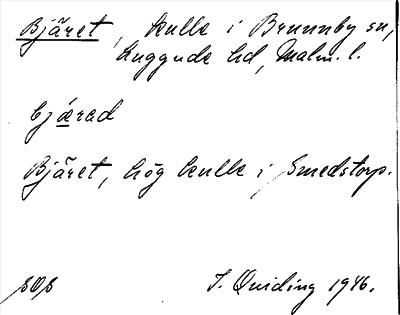 Bjäret, kulle i Brunnby sn,
Luggude hd, Malm. l.
bjærad
Bjäret, hög kulle i Smedstorp.
SOS
I. Quiding 1946.